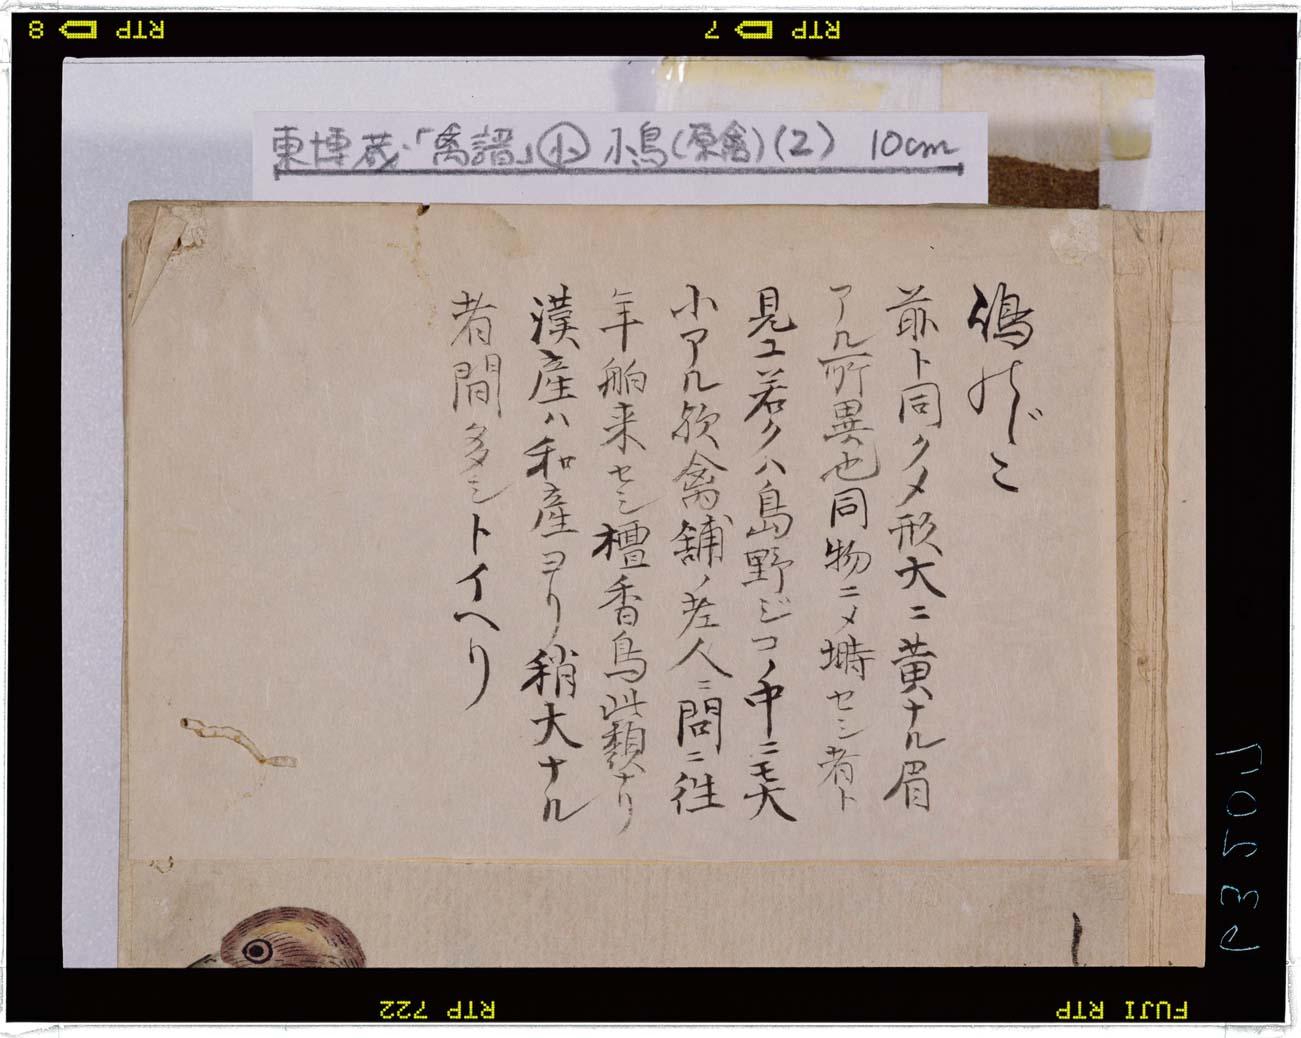 東博蔵・「禽譜」㊉ 小鳥(原禽)(2) 10cm
嶋のじこ
前ト同クメ形大ニ黄ナル眉
アル所異也同物ニメ塒セシ者ト
見ユ若クハ島野ジコノ中ニモ大
小アル欤禽舗ノ老人ニ問ニ往
年舶来セシ檀香鳥此類ナリ
漢産ハ和産ヨリ稍大ナル
者間多シトイヘリ
RTP 7
RTP 8
RTP 722
FUJI RTP
P350J